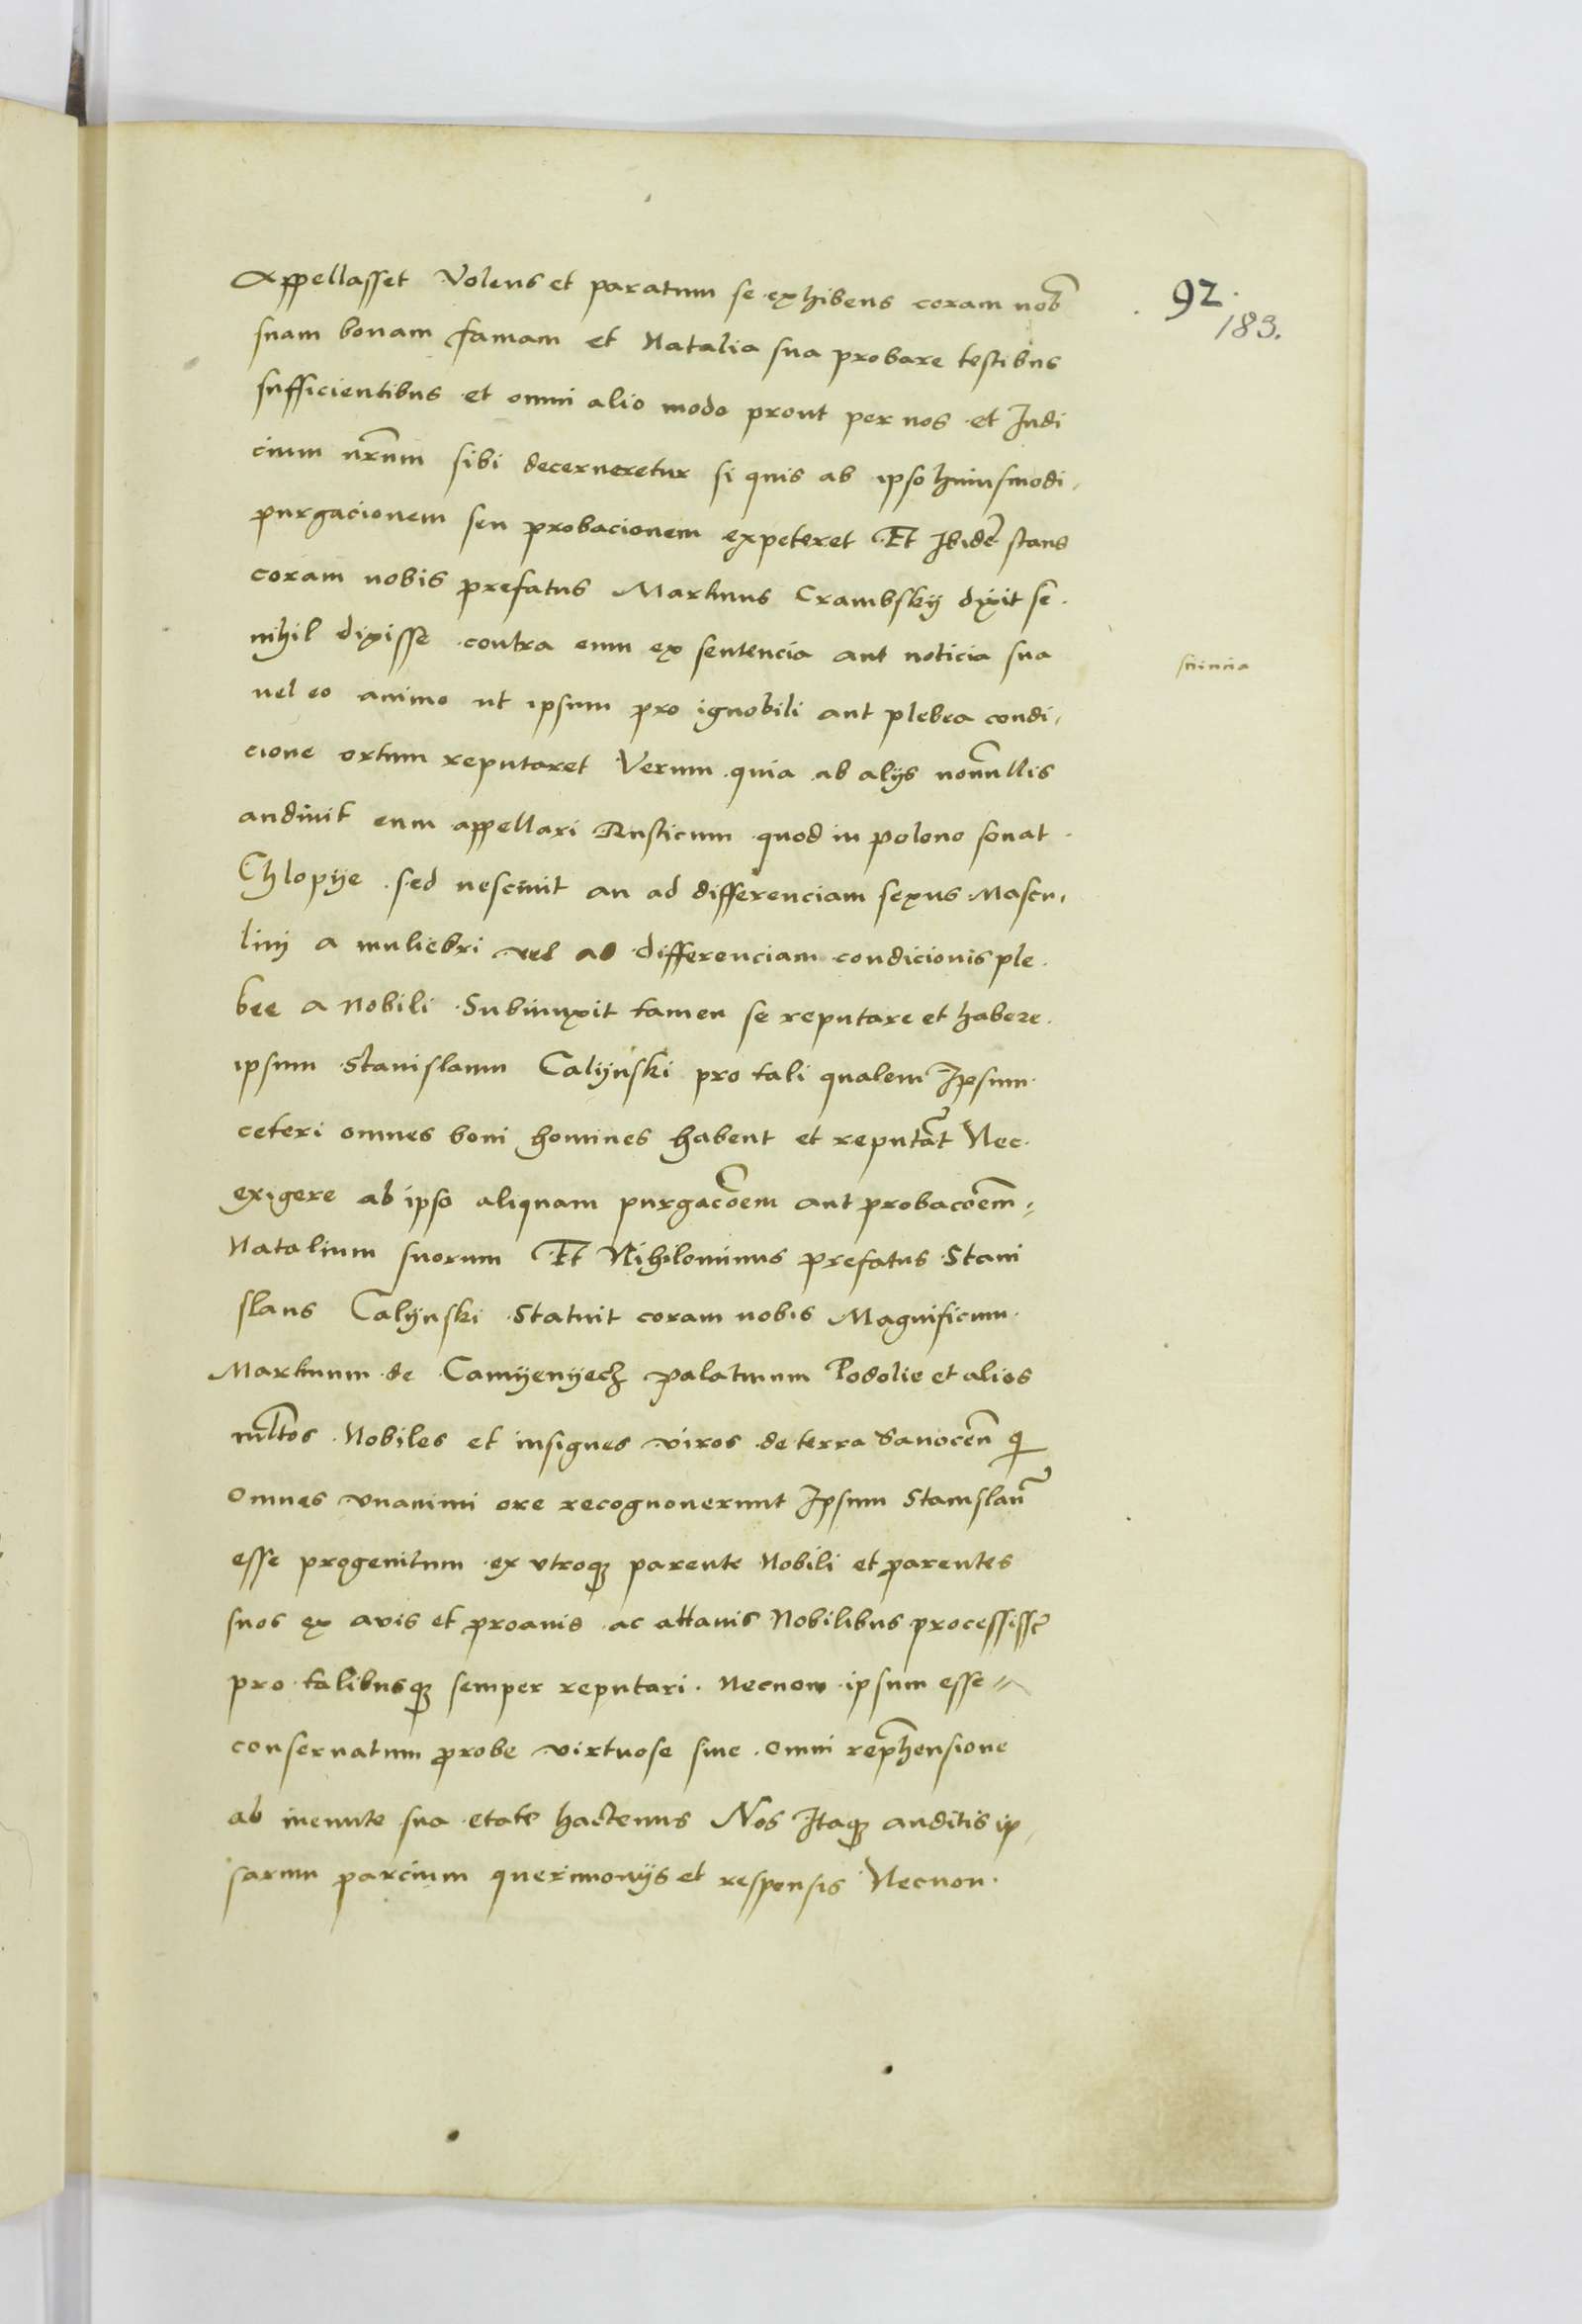 92.
183.
Appellasset Volens et paratum se exhibens coram nob
suam bonam famam et Natalia sua probare testibus
sufficientibus et omni alio modo prout per nos et Iudi
cium nrum sibi decerneretur si quis ab ipso huiusmodi
purgacionem seu probacionem expeteret Et Ibide stans
coram nobis prefatus Martinus Crambskij dixit se
nihil dixisse contra eum ex sentencia aut noticia sua
sciencia
vel eo animo ut ipsum pro ignobili aut plebea condi
cione ortum reputaret Verum quia ab alijs nonnullis
audivit eum appellari Rusticum quod in polono sonat
Chlopije sed nescivit an ad differenciam sexus Mascu
linj a muliebri vel ad differenciam condicionis ple
bee a Nobili Subiunxit tamen se reputare et habere
ipsum Stanislaum Calijnski pro tali qualem Ipsum
ceteri omnes boni homines habent et reputat Nec
exigere ab ipso aliquam purgacoem aut probacoem
Natalium suorum Et Nihilominus prefatus Stani
slaus Calijnski Statuit coram nobis Magnificum
Martinum de Camijenijecz palatinum Podolie et alios
mltos Nobiles et insignes viros de terra Sanocen q
omnes vnanimi ore recognoverunt Ipsum Stanislau
esse progenitum ex vtroq parente Nobili et parentes
suos ex avis et proavis ac attavis Nobilibus processisse
pro talibusq semper reputari Necnon ipsum esse
conservatum probe virtuose sine omni rephensione
ab ineunte sua etate hactenus Nos Itaq auditis ip
sarum parcium querimonijs et responsis Necnon